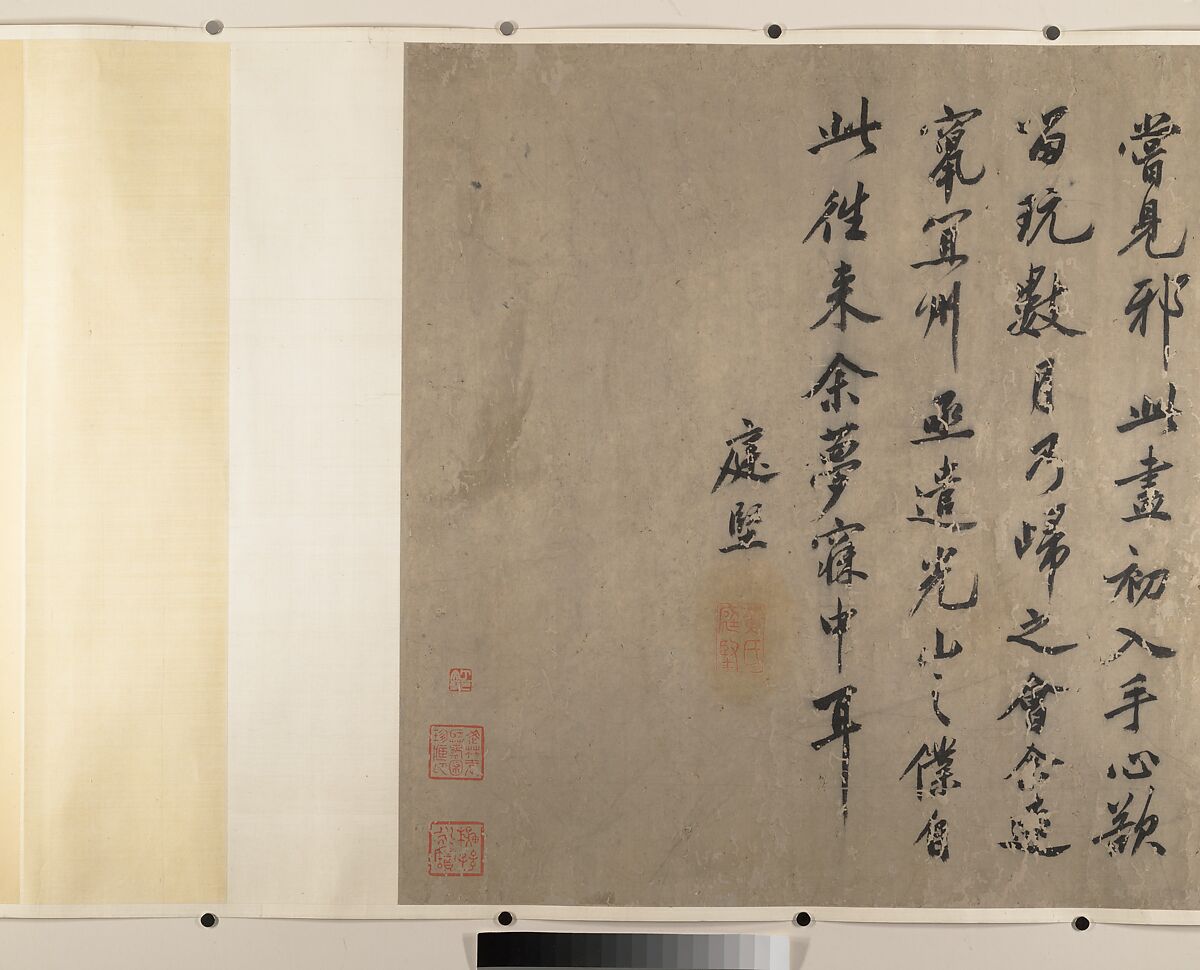 嘗見邪此畫初入手心歡
留玩數月乃歸之會余遷
竄宜州亟遣光山之僕自
此往來余夢寐中耳
庭堅
黃氏庭堅